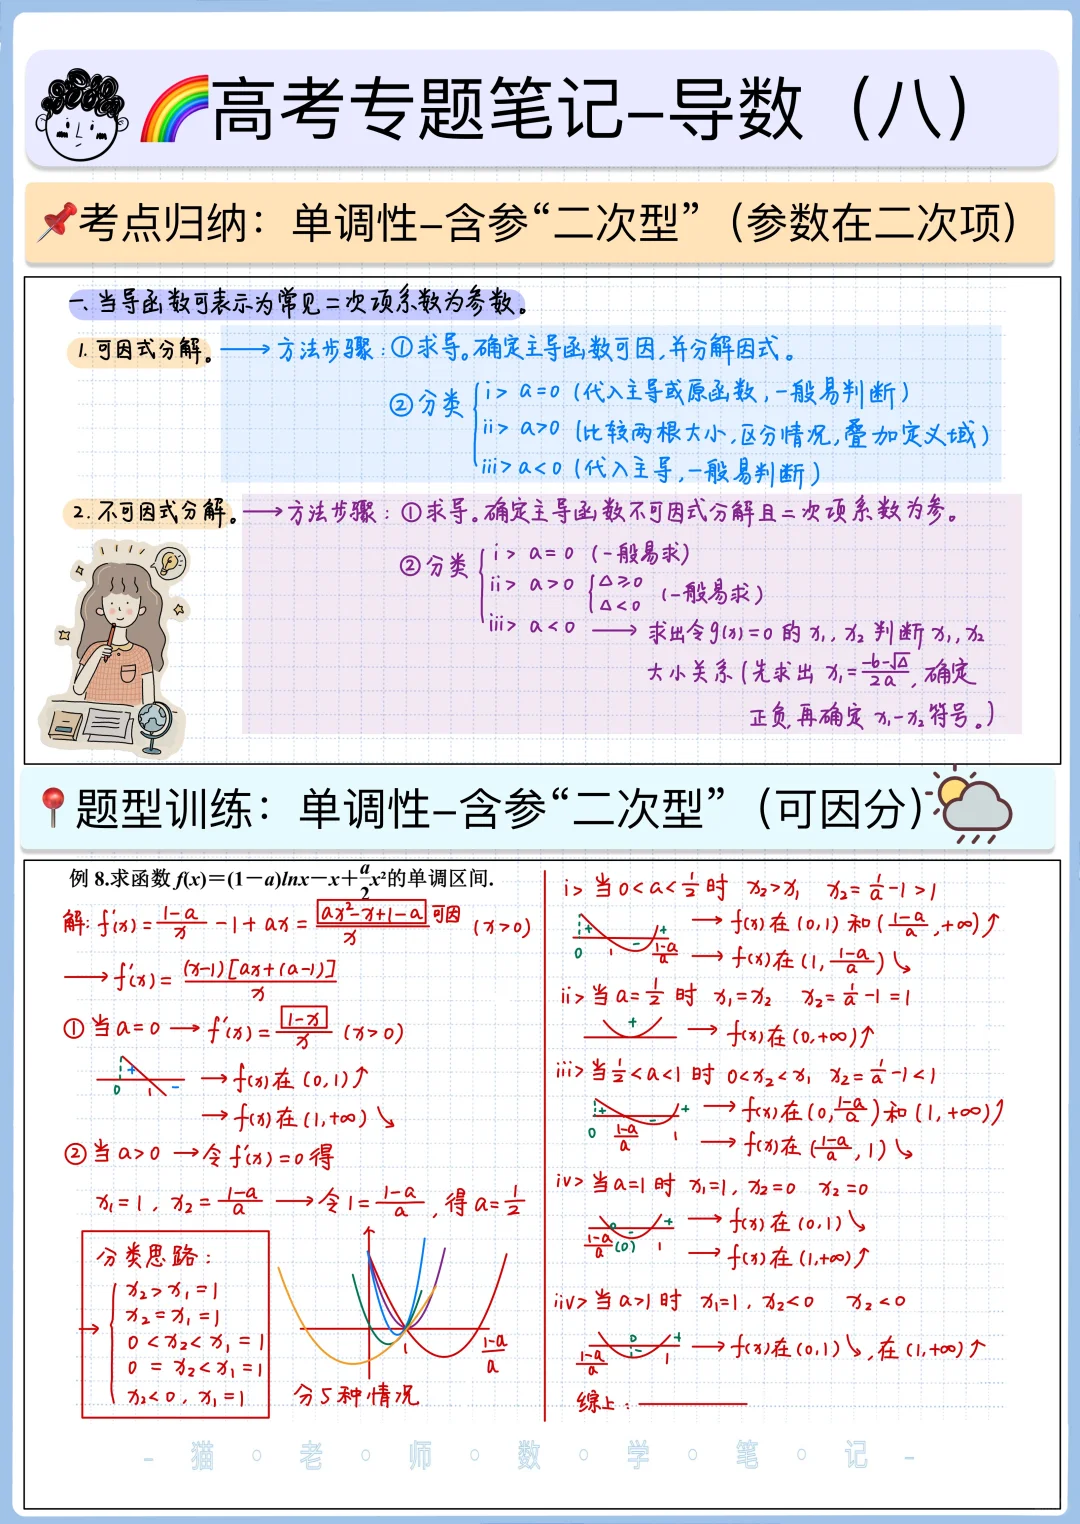 高考专题笔记-导数（八）
考点归纳：单调性-含参“二次型”（参数在二次项）
一、当导函数可表示为常见二次项系数为参数。
1. 可因式分解。 → 方法步骤：①求导。确定主导函数可因，并分解因式。
②分类
i> a=0（代入主导或原函数，一般易判断）
ii> a>0（比较两根大小，区分情况，叠加定义域）
iii> a<0（代入主导，一般易判断）
2. 不可因式分解。→ 方法步骤：①求导。确定主导函数不可因式分解且二次项系数为参。
②分类
i> a=0（一般易求）
ii> a>0 { △≥0 △<0（一般易求）
iii> a<0 → 求出令g(x)=0 的 x₁、x₂ 判断 x₁、x₂
大小关系（先求出 x₁=(-b-√△)/2a，确定
正负，再确定 x₁-x₂ 符号。）
题型训练：单调性-含参“二次型”（可因分）
例 8.求函数 f(x)=(1-a)lnx-x+a/2 x²的单调区间.
解: f'(x)=(1-a)/x -1+ax=(ax²-x+1-a)/x 可因 (x>0)
→ f'(x)=(x-1)[ax+(a-1)]/x
①当a=0 → f'(x)=(1-x)/x (x>0)
+ - 0 1
→ f(x)在(0,1)↑
→ f(x)在(1,+∞)↘
②当a>0 → 令f'(x)=0得
x₁=1, x₂=(1-a)/a → 令1=(1-a)/a, 得a=1/2
分类思路：
x₂>x₁=1
x₂=x₁=1
0<x₂<x₁=1
0=x₂<x₁=1
x₂<0, x₁=1
1 (1-a)/a
分5种情况
i> 当0<a<1/2时 x₂>x₁ x₂=1/a-1>1
+ - + 0 1 (1-a)/a
→ f(x)在(0,1)和((1-a)/a,+∞)↑
→ f(x)在(1,(1-a)/a)↘
ii> 当a=1/2时 x₁=x₂ x₂=1/a-1=1
+
→ f(x)在(0,+∞)↑
iii> 当1/2<a<1时 0<x₂<x₁ x₂=1/a-1<1
+ - + 0 (1-a)/a 1
→ f(x)在(0,(1-a)/a)和(1,+∞)↑
→ f(x)在((1-a)/a,1)↘
iv> 当a=1时 x₁=1, x₂=0 x₂=0
0 - + (1-a)/a (0) 1
→ f(x)在(0,1)↘
→ f(x)在(1,+∞)↑
iiv> 当a>1时 x₁=1, x₂<0 x₂<0
0 - + (1-a)/a 1
→ f(x)在(0,1)↘, 在(1,+∞)↑
综上：
- 猫 · 老 · 师 · 数 · 学 · 笔 · 记 -